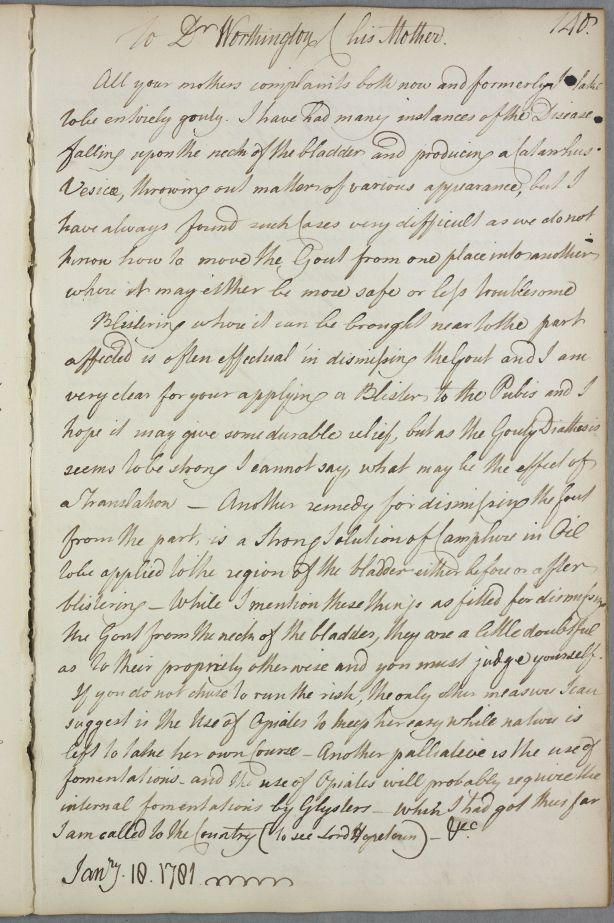 To Dr Worthington (his Mother.
140.
All your mothers complaints both now and formerly I take
to be entirely gouty. I have had many instances of the Disease
falling upon the neck of the bladder and producing a Catarrhus
Vesicæ, throwing out matters of various appearance, but I
have always found such Cases very difficult as we do not
know how to move the Gout from one place into another
where it may either be more safe or less troublesome
Blistering where it can be brought near to the part
affected is often effectual in dismissing the Gout and I am
very clear for your applying a Blister to the Pubis and I
hope it may give some durable relief, but as the Gouty Diathesis
seems to be strong I cannot say what may be the effect of
a Translation — Another remedy for dismissing the Gout
from the part, is a Strong Solution of Camphire in Oil
to be applied to the region of the bladder either before or after
blistering — While I mention these things as fitted for dismissing
the Gout from the neck of the bladder, they are a little doubtful
as to their propriety otherwise and you must judge yourself.
If you do not chuse to run the risk, the only other measure I can
suggest is the Use of Opiates to keep her easy while nature is
left to take her own Course — Another palliative is the use of
fomentations - and the use of Opiates will probably require the
internal fomentations by Glysters — when I had got thus far
I am called to the Country (to see Lord Hopetown) — &c
Janry. 18. 1781